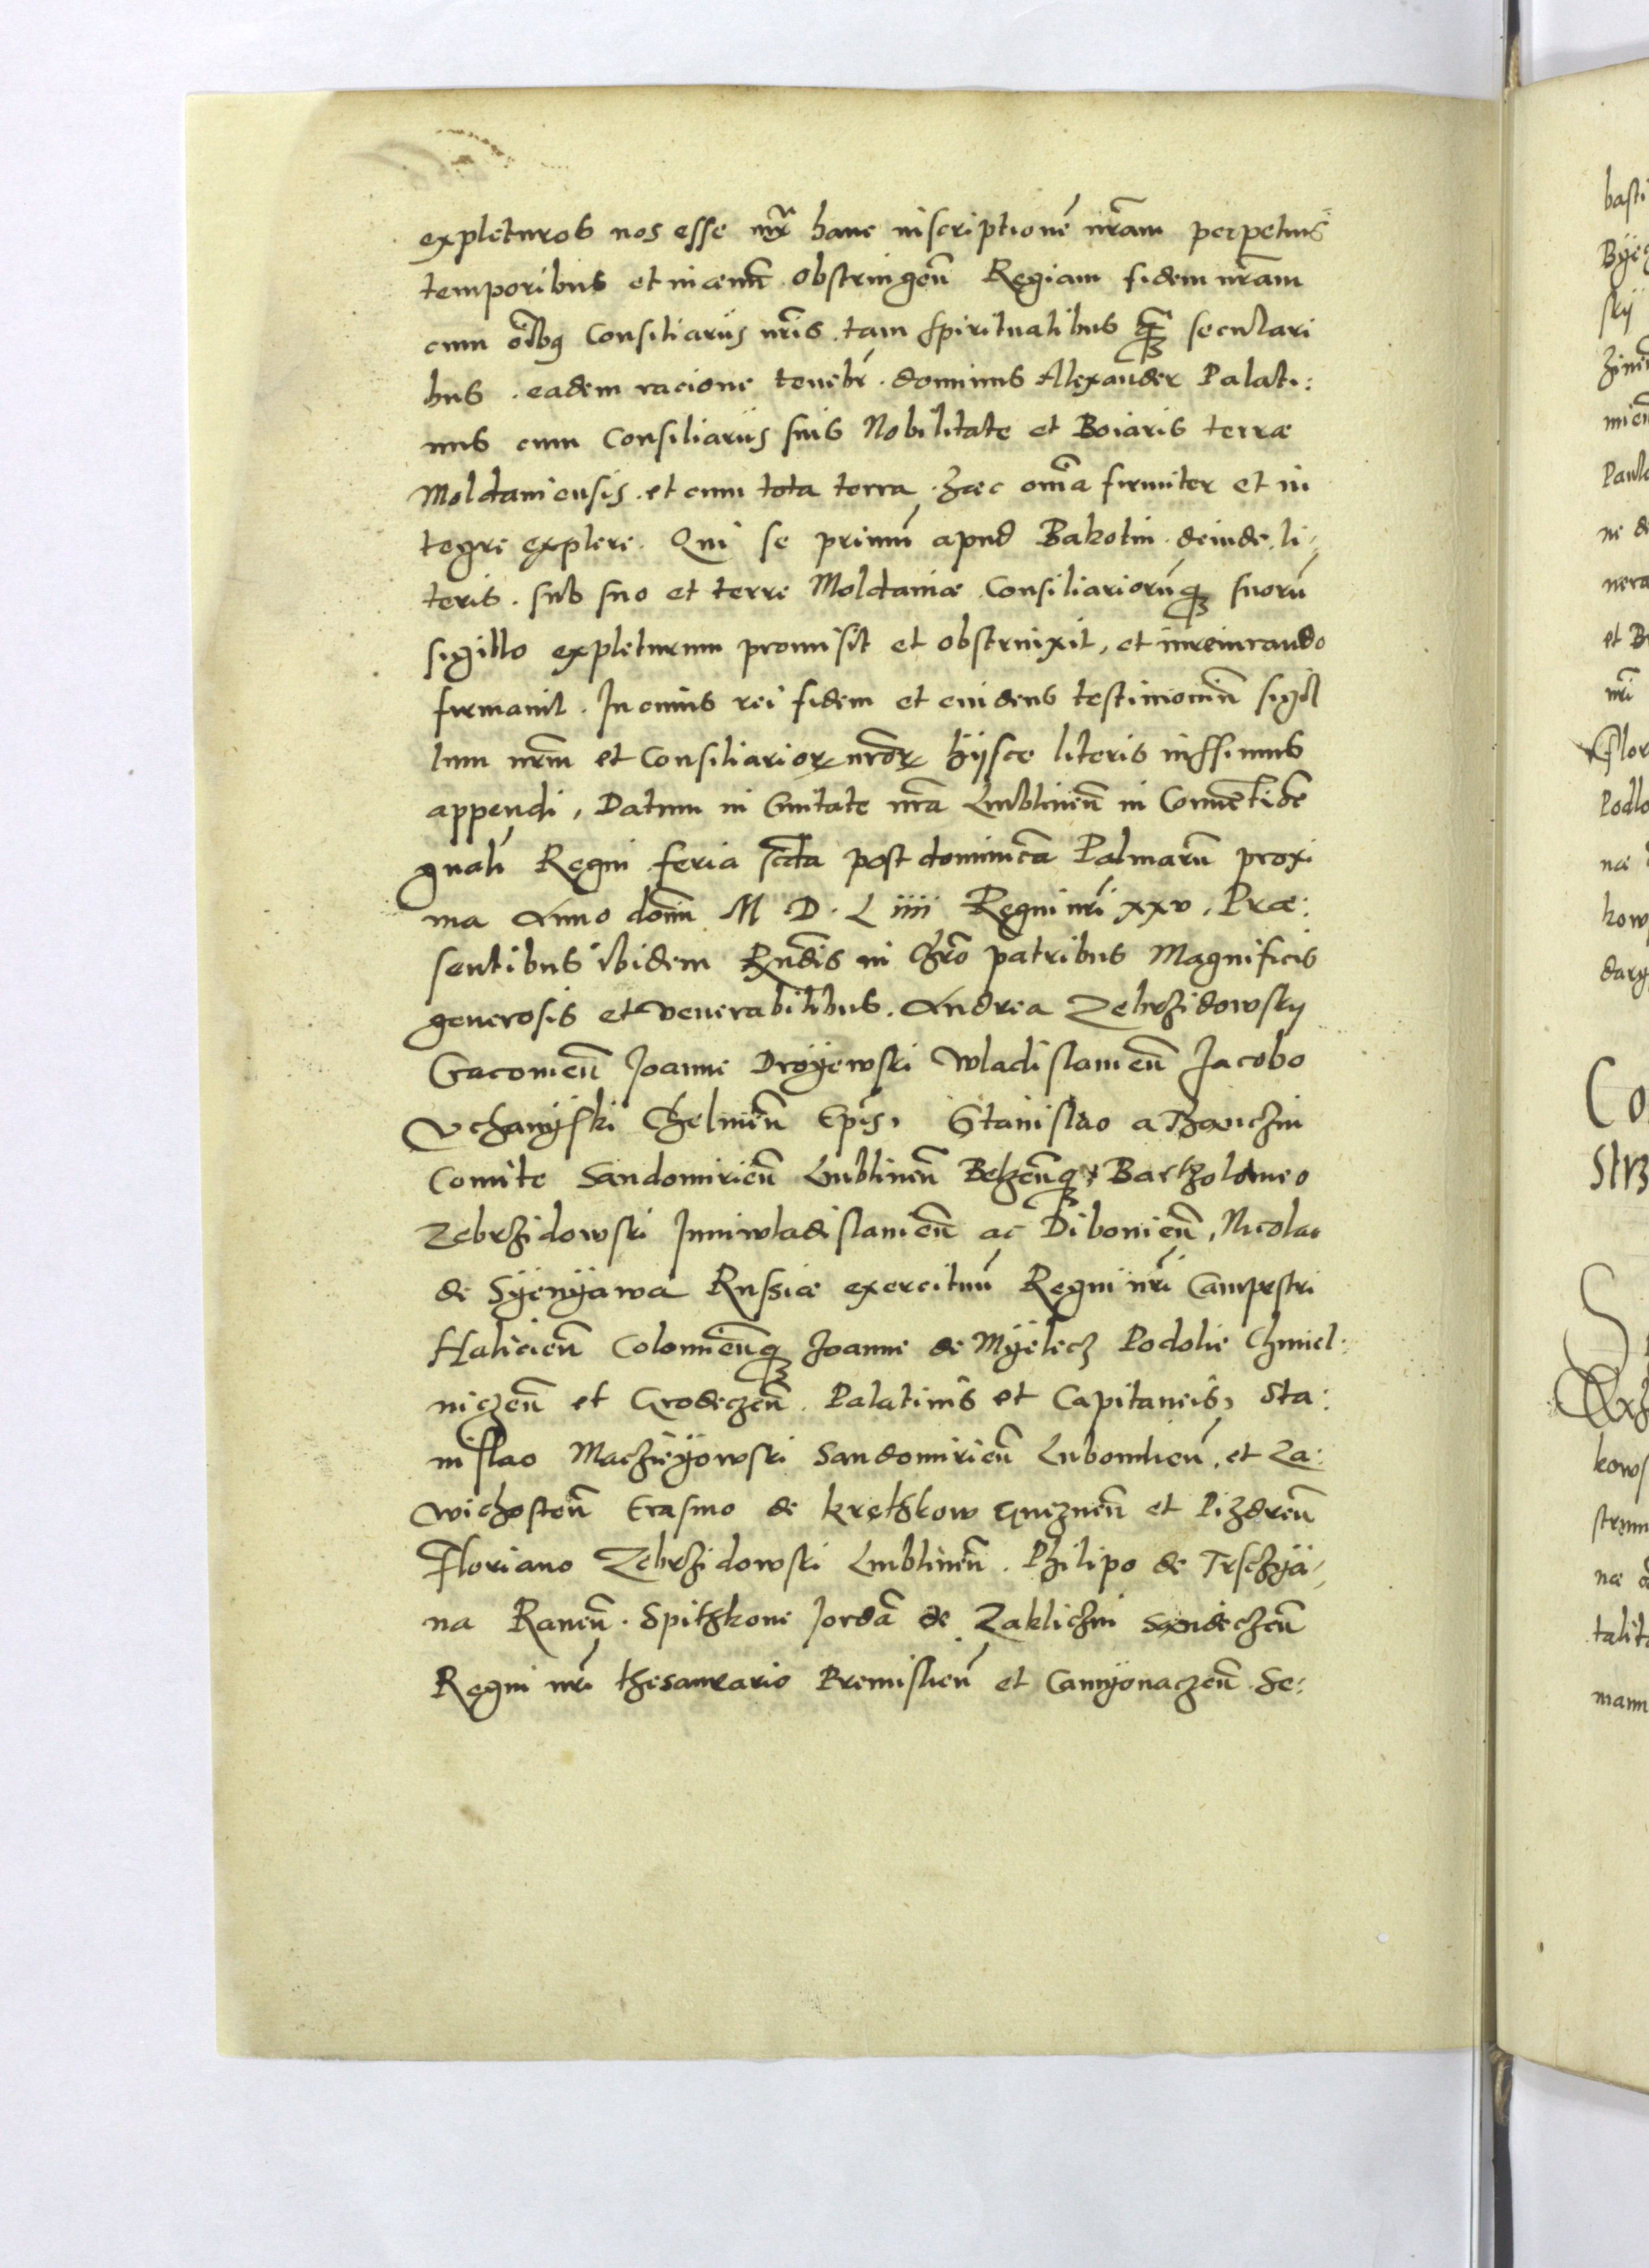 expleturos nos esse hanc inscriptionē nr̄am perpetuis
temporibus et in ævum obstringeñ Regiam fidem nr̄am
cum oībq Consiliariis nr̄is tam spiritualibus q̄ȝ seculari
bus . eadem racione tenebr̄ . dominus Alexander Palati:
nus cum Consiliariis suis Nobilitate et Boiaris terræ
Moldaviensis . et cum tota terra . Hæc omīa firmiter et in
tegre explere . Qui se primū apud Bakotin . deinde li-
teris . sub suo et terre Moldaviæ Consiliariorūqȝ suorū
sigillo expleturum promisit et obstrinxit, et iureiurando
firmavit . In cuius rei fidem et evidens testimoniū sigil
lum nr̄m et Consiliarior nr̄or hijsce literis iussimus
appendi, Datum in Civitate nr̄a Lublineñ in Conventiōe
gnali Regni feria scda post dominicā Palmarū proxi
ma Anno domī M D . L iiii Regni nr̄i xxv . Præ:
sentibus ibidem Rn̄dis in Chr̄o patribus Magnificis
generosis et venerabilibus . Andrea Zebrzidowsky
Cracovieñ Joanne Droyewski Wladislavieñ Jacobo
Uchanyski Chelmeñ Ep̄is, Stanislao a Thanczin
Comite Sandomirieñ Lublineñ Belzeñqȝ Bartholomeo
Zebrzidowski Juniwladislavieñ ac Dibovieñ, Nicolao
de Syenyawa Russiæ exercituū Regni nr̄i Campestri
Halicieñ Colomieñqȝ Joanne de Myelecz Podolie Chmiel:
niczeñ et Grodeczeñ . Palatinis et Capitaneis, Sta:
nislao Maczieyowski Sandomirieñ Lubomlieñ . et Za:
wichosteñ Erasmo de Kretzkow Gnezneñ et Pizdreñ
Floriano Zebrzidowski Lublineñ . Philipo de Trschyä-
na Raveñ . Spitzkone Jordā de Zaklichzin Sandeczeñ
Regni nr̄i thesaurario Premislieñ et Camyonaczeñ . Se: